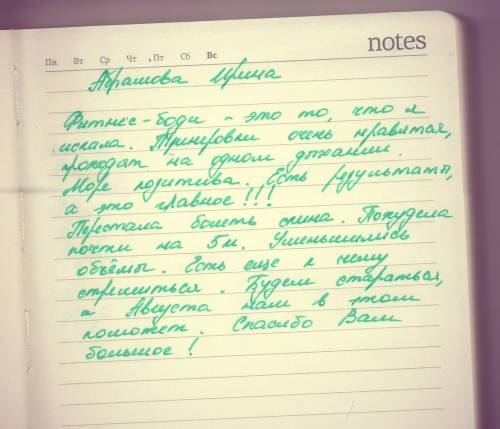 notes
Пн Вт Ср Чт Пт Сб Вс
Абрамова Ирина
Фитнес-боди - это то, что я
искала. Тренировки очень нравятся,
проходят на одном дыхании.
Море позитива. Есть результаты,
а это главное!!!
Перестала болеть спина. Похудела
почти на 5 к. Уменьшились
объёмы. Есть еще к чему
стремиться. Будем стараться,
а Августа нам в этом
поможет. Спасибо Вам
большое!